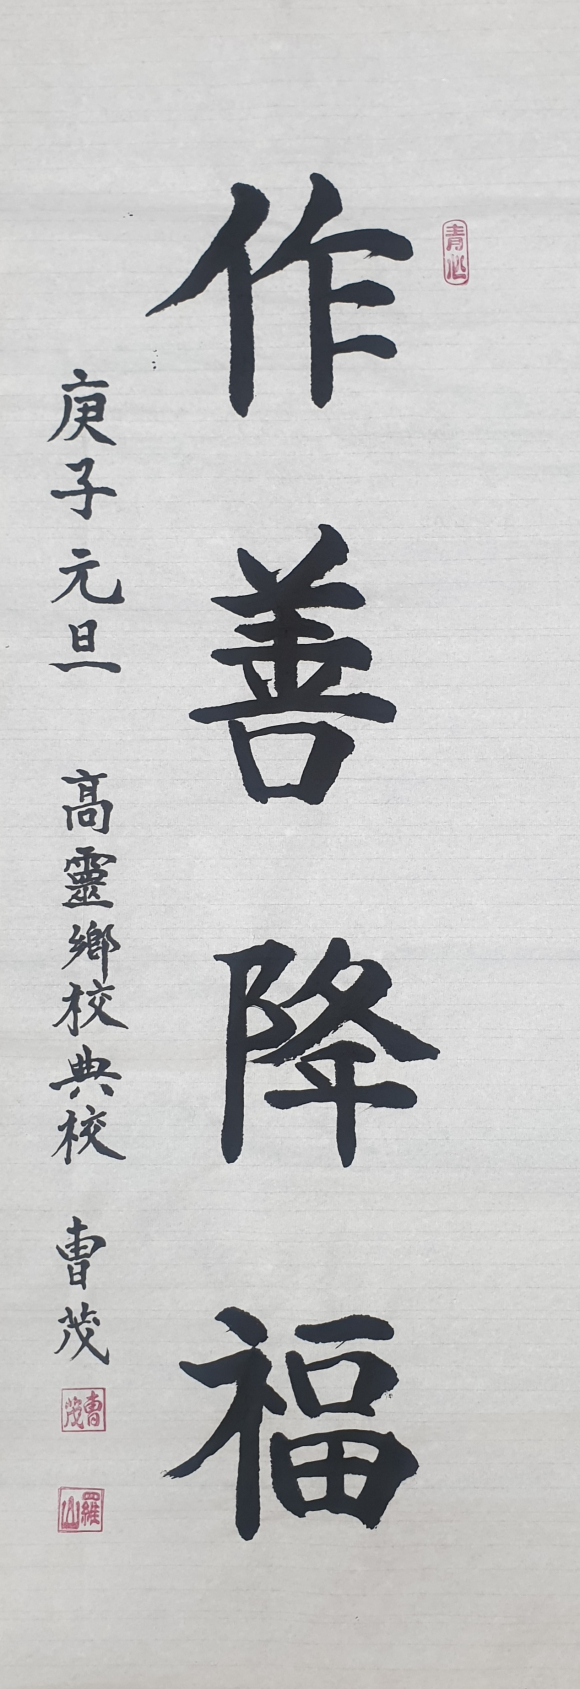 作善降福
庚子元旦 高靈鄉校典校 曺茂
曺茂
羅山